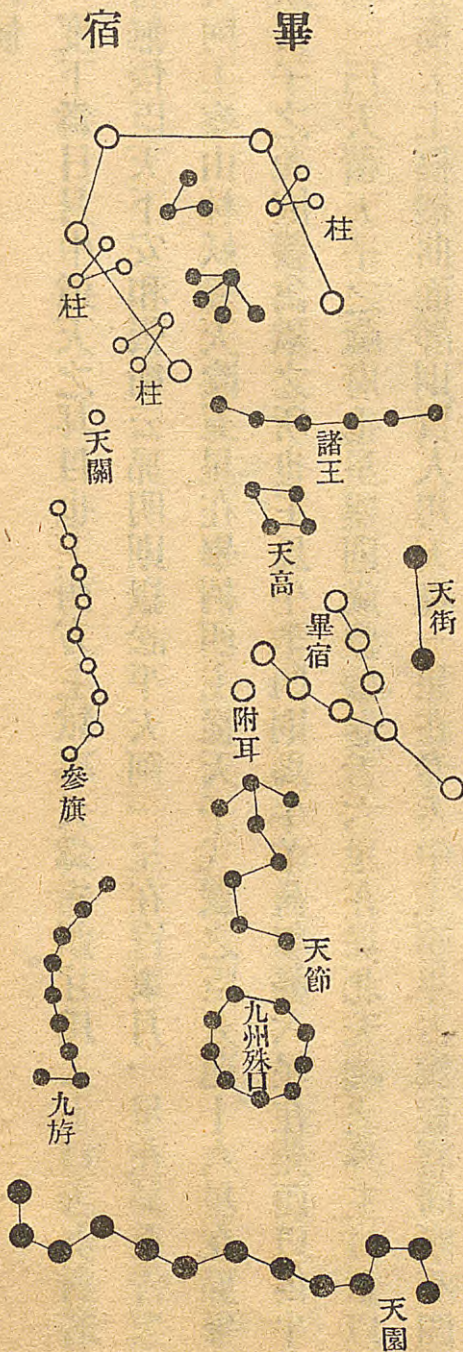 畢宿
柱
柱
柱
諸王
天關
天高
天街
畢宿
附耳
參旗
天節
九州殊口
九斿
天園